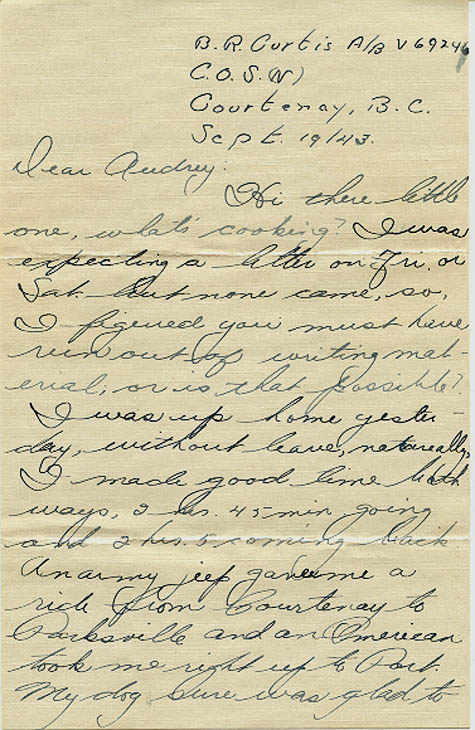 B. R. Curtis A/B V 69246
C.O.S.(N)
Courtenay, B.C.
Sept. 19/43.
Dear Audrey:
Hi there little
one, what's cooking? I was
expecting a letter on Fri. or
Sat. but none came, so,
I figured you must have
run out of writing mat-
erial, or is that possible?
I was up home yester-
day, without leave, natureally,
I made good time both
ways, 2 hrs. 45 min. going
and 2 hrs. 5 coming back
An army jeep gave me a
ride from Courtenay to
Parksville and an American
took me right up to Port.
My dog sure was glad to